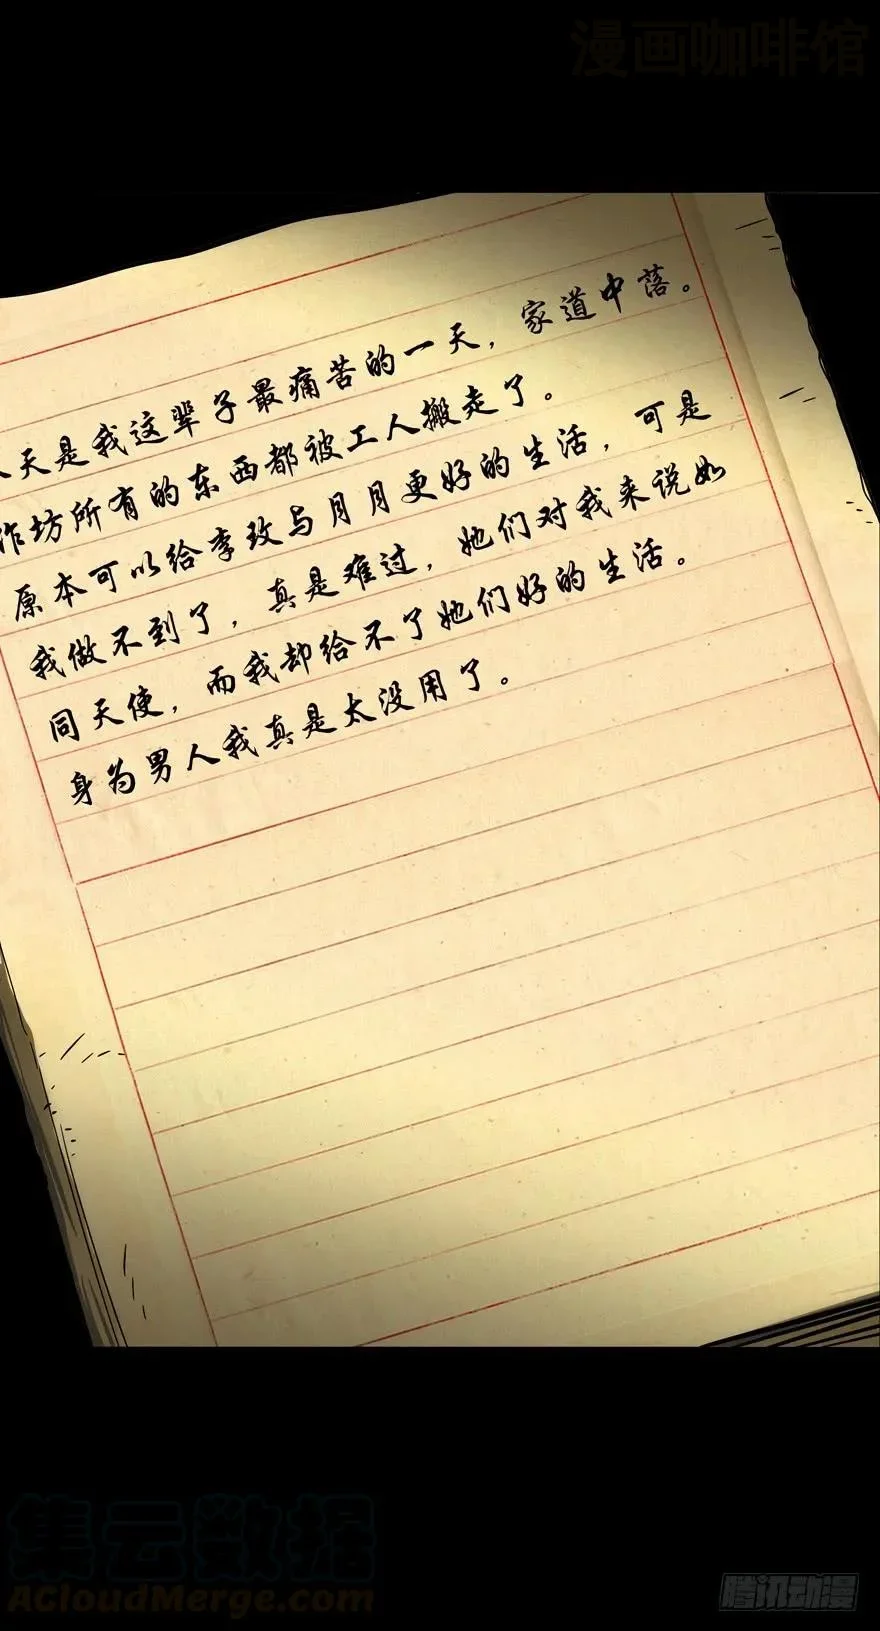 漫画咖啡馆
天是我这辈子最痛苦的一天，家道中落。
作坊所有的东西都被工人搬走了。
原本可以给李玫与月月更好的生活，可是
我做不到了，真是难过，她们对我来说如
同天使，而我却给不了她们好的生活。
身为男人我真是太没用了。
集云数据
ACloudMerge.com
腾讯动漫